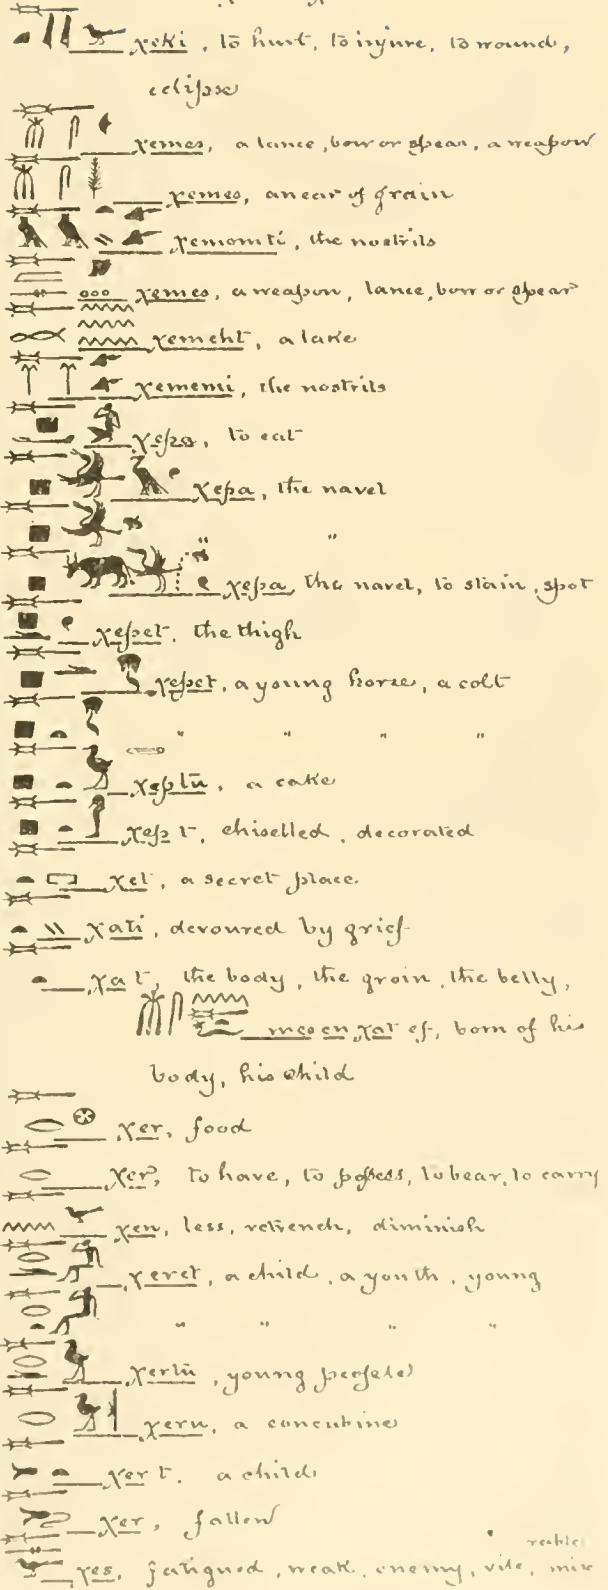 χeki, to hurt, to injure, to wound,
eclipse
χemes, a lance, bow or spear, a weapon
χemes, an ear of grain
χemomti, the nostrils
χemes, a weapon, lance, bow or spear
χemeht, a lake
χememi, the nostrils
χepa, to eat
χepa, the navel
" 
χepa, the navel, to stain, spot
χepet, the thigh
χepet, a young horse, a colt
" " " "
χeptū, a cake
χep t, chiselled, decorated
χet, a secret place
χati, devoured by grief
χat, the body, the groin, the belly,
mes en χat ef, born of his
body, his child
χer, food
χer, to have, to possess, to bear, to carry
χen, less, retrench, diminish
χeret, a child, a youth, young
" " " "
χertū, young people
χeru, a concubine
χer t, a child
χer, fallen
χes, fatigued, weak, enemy, vile, mise
rable